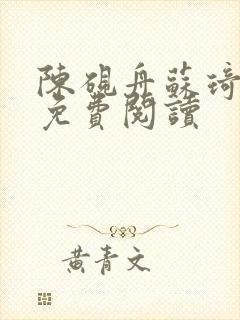 陳硯舟蘇琦
免費閱讀
黃青文